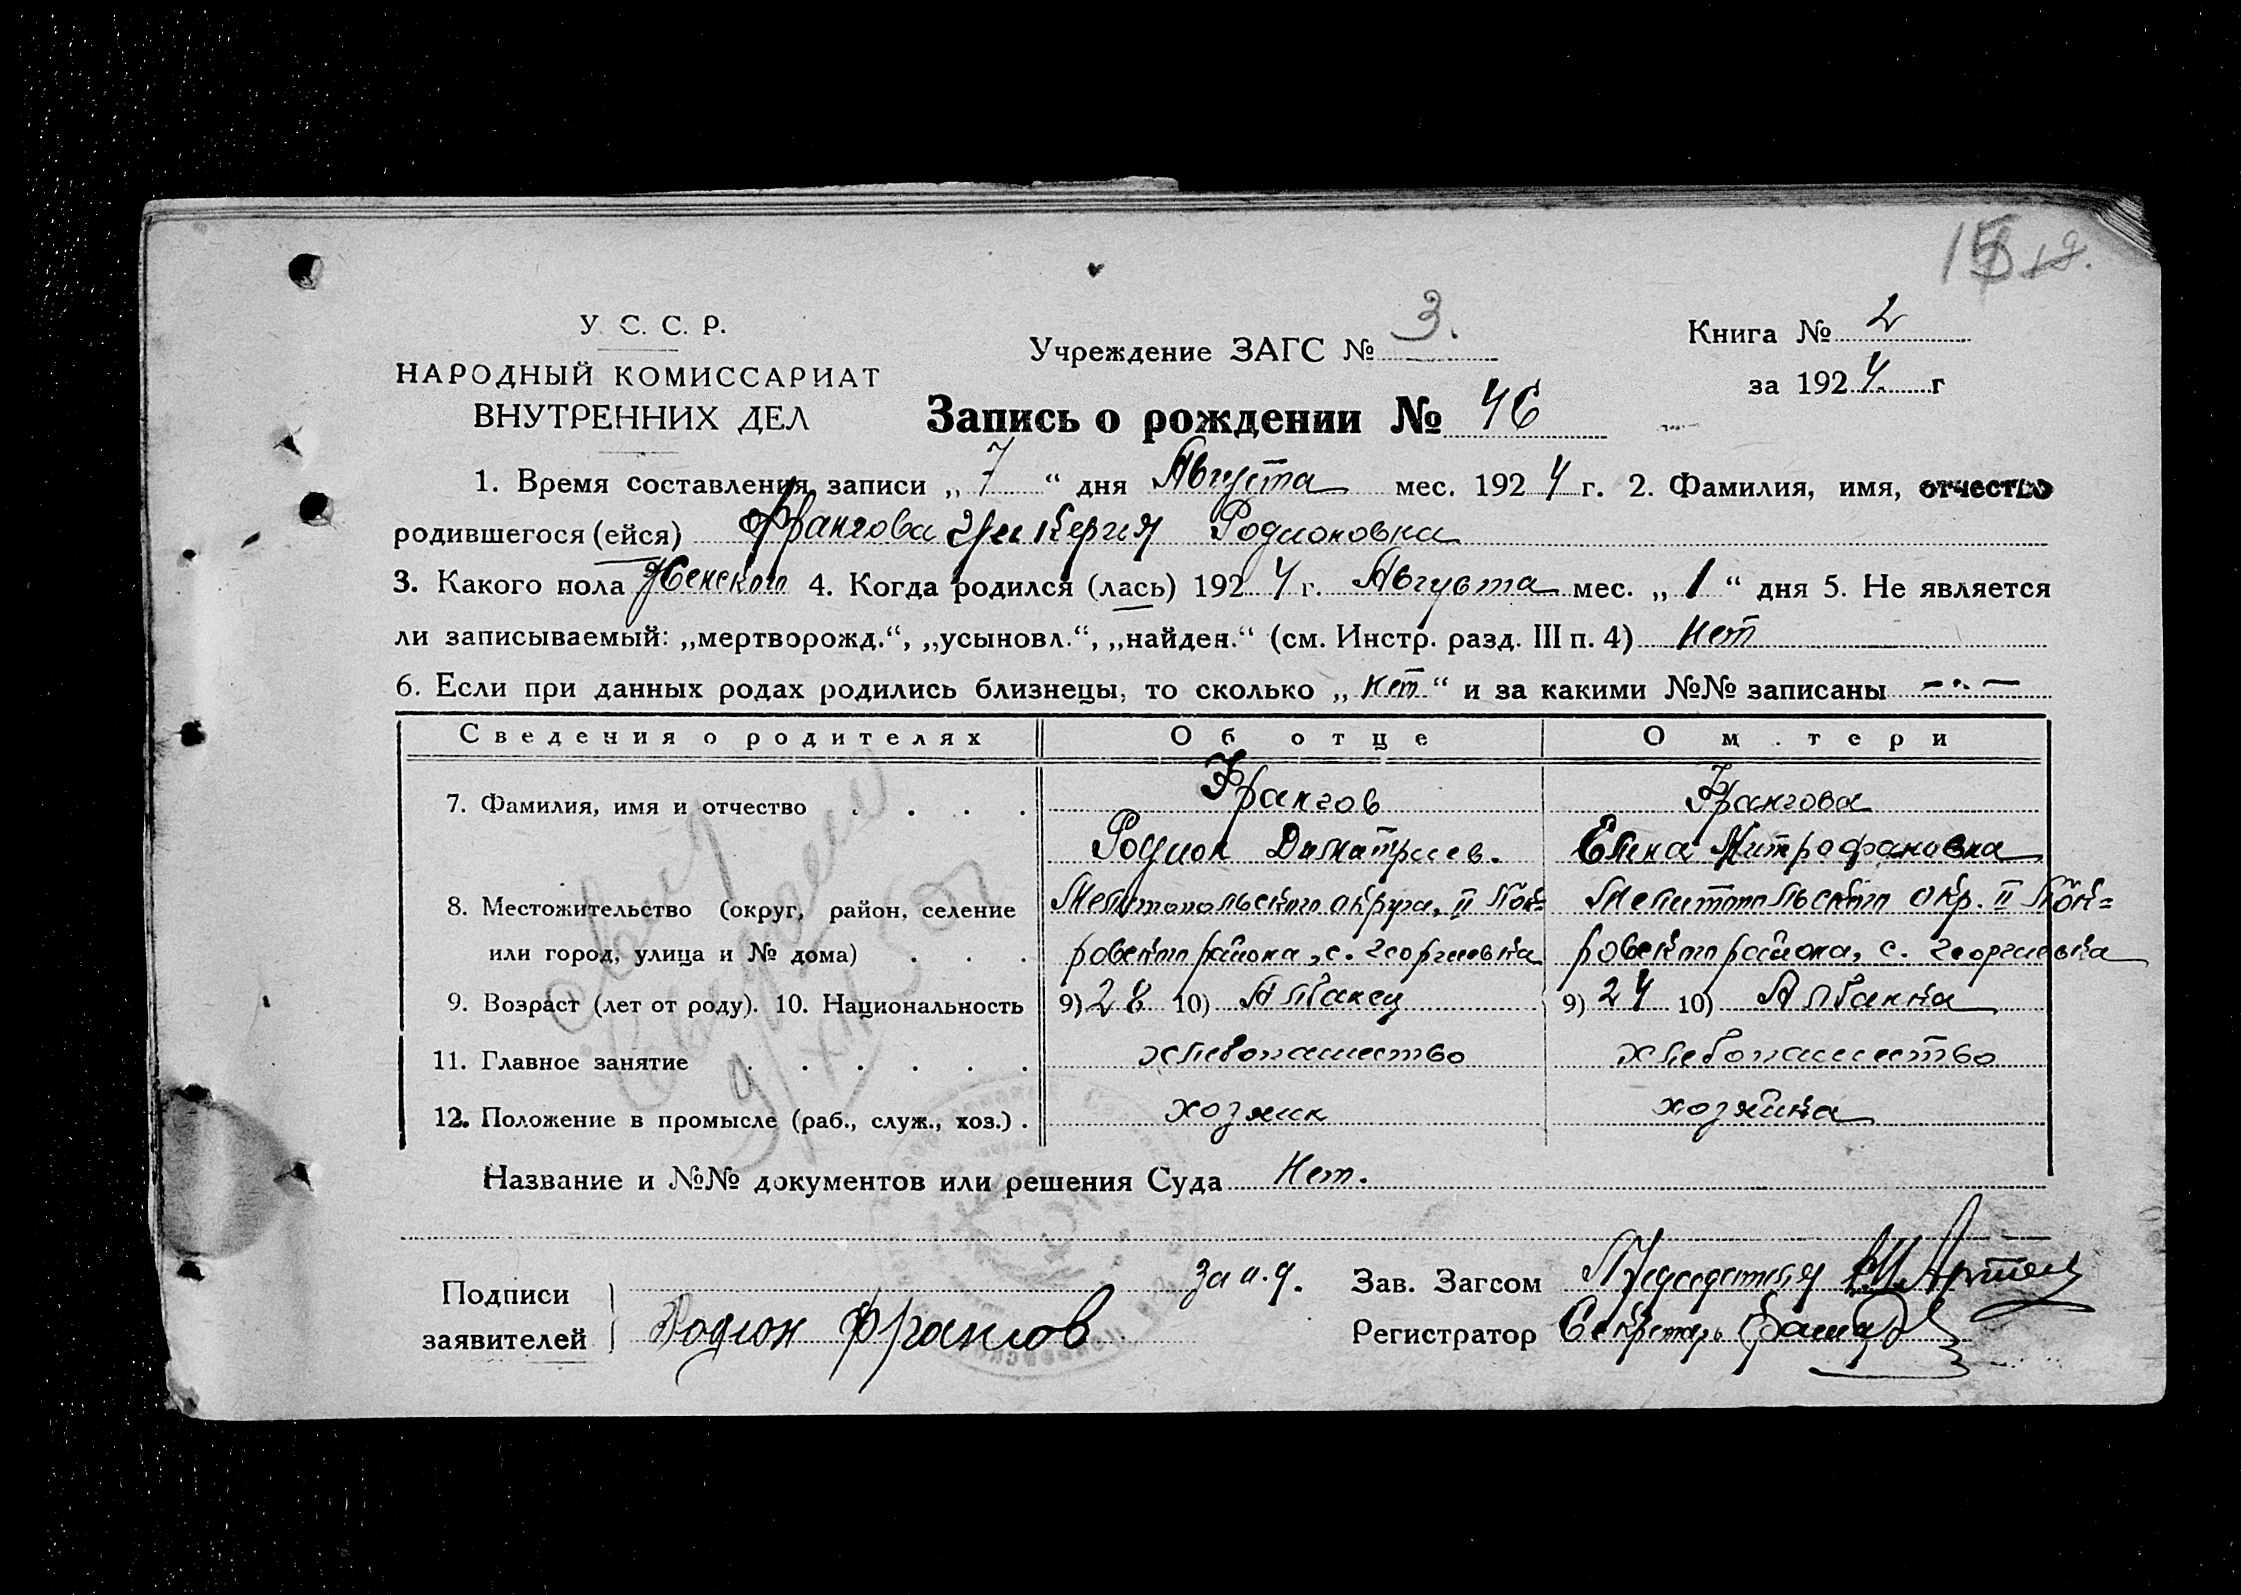 У. С. С. Р.
НАРОДНЫЙ КОМИССАРИАТ
ВНУТРЕННИХ ДЕЛ
Учреждение ЗАГС № 3.
Книга № 2
за 1924 г
Запись о рождении № 46
1. Время составления записи „ 7 “ дня Августа мес. 1924 г. 2. Фамилия, имя, отчество
родившегося (ейся) Франгова Родионовна
3. Какого пола Женского 4. Когда родился (лась) 1924 г. Августа мес. „ 1 “ дня 5. Не является
ли записываемый: „мертворожд.“, „усыновл.“, „найден.“ (см. Инстр. разд. III п. 4) Нет
6. Если при данных родах родились близнецы, то сколько „ Нет “ и за какими №№ записаны —.—
Сведения о родителях Об отце О м.тери
7. Фамилия, имя и отчество . . . . Франгов Франгова
Родион Диматриев. Елена Митрофановна
8. Местожительство (округ, район, селение Мелитопольского округа, II Пок= Мелитопольского окр. II Пок=
или город, улица и № дома) . . . ровского района, с. Георгиевка ровского района, с. Георгиевка
9. Возраст (лет от роду). 10. Национальность 9) 28 10) Албанец 9) 24 10) Албанка
11. Главное занятие . . . . . . хлебопашество хлебопашество
12. Положение в промысле (раб., служ., хоз.) . хозяин хозяйка
Название и №№ документов или решения Суда Нет.
Подписи
заявителей
Родион Франгов
За и.д. Зав. Загсом Председателя
Регистратор Секретарь